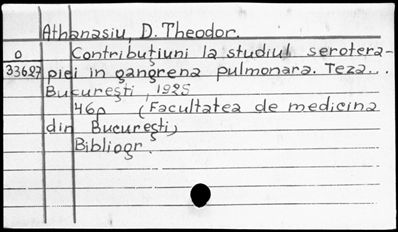 Athanasiu, D. Theodor.
O Contribuţiuni la studiul serotera-
33627 piei in gangrena pulmonara. Teza...
Bucureşti, 1925
46p (Facultatea de medicina
din Bucureşti)
Bibliogr.